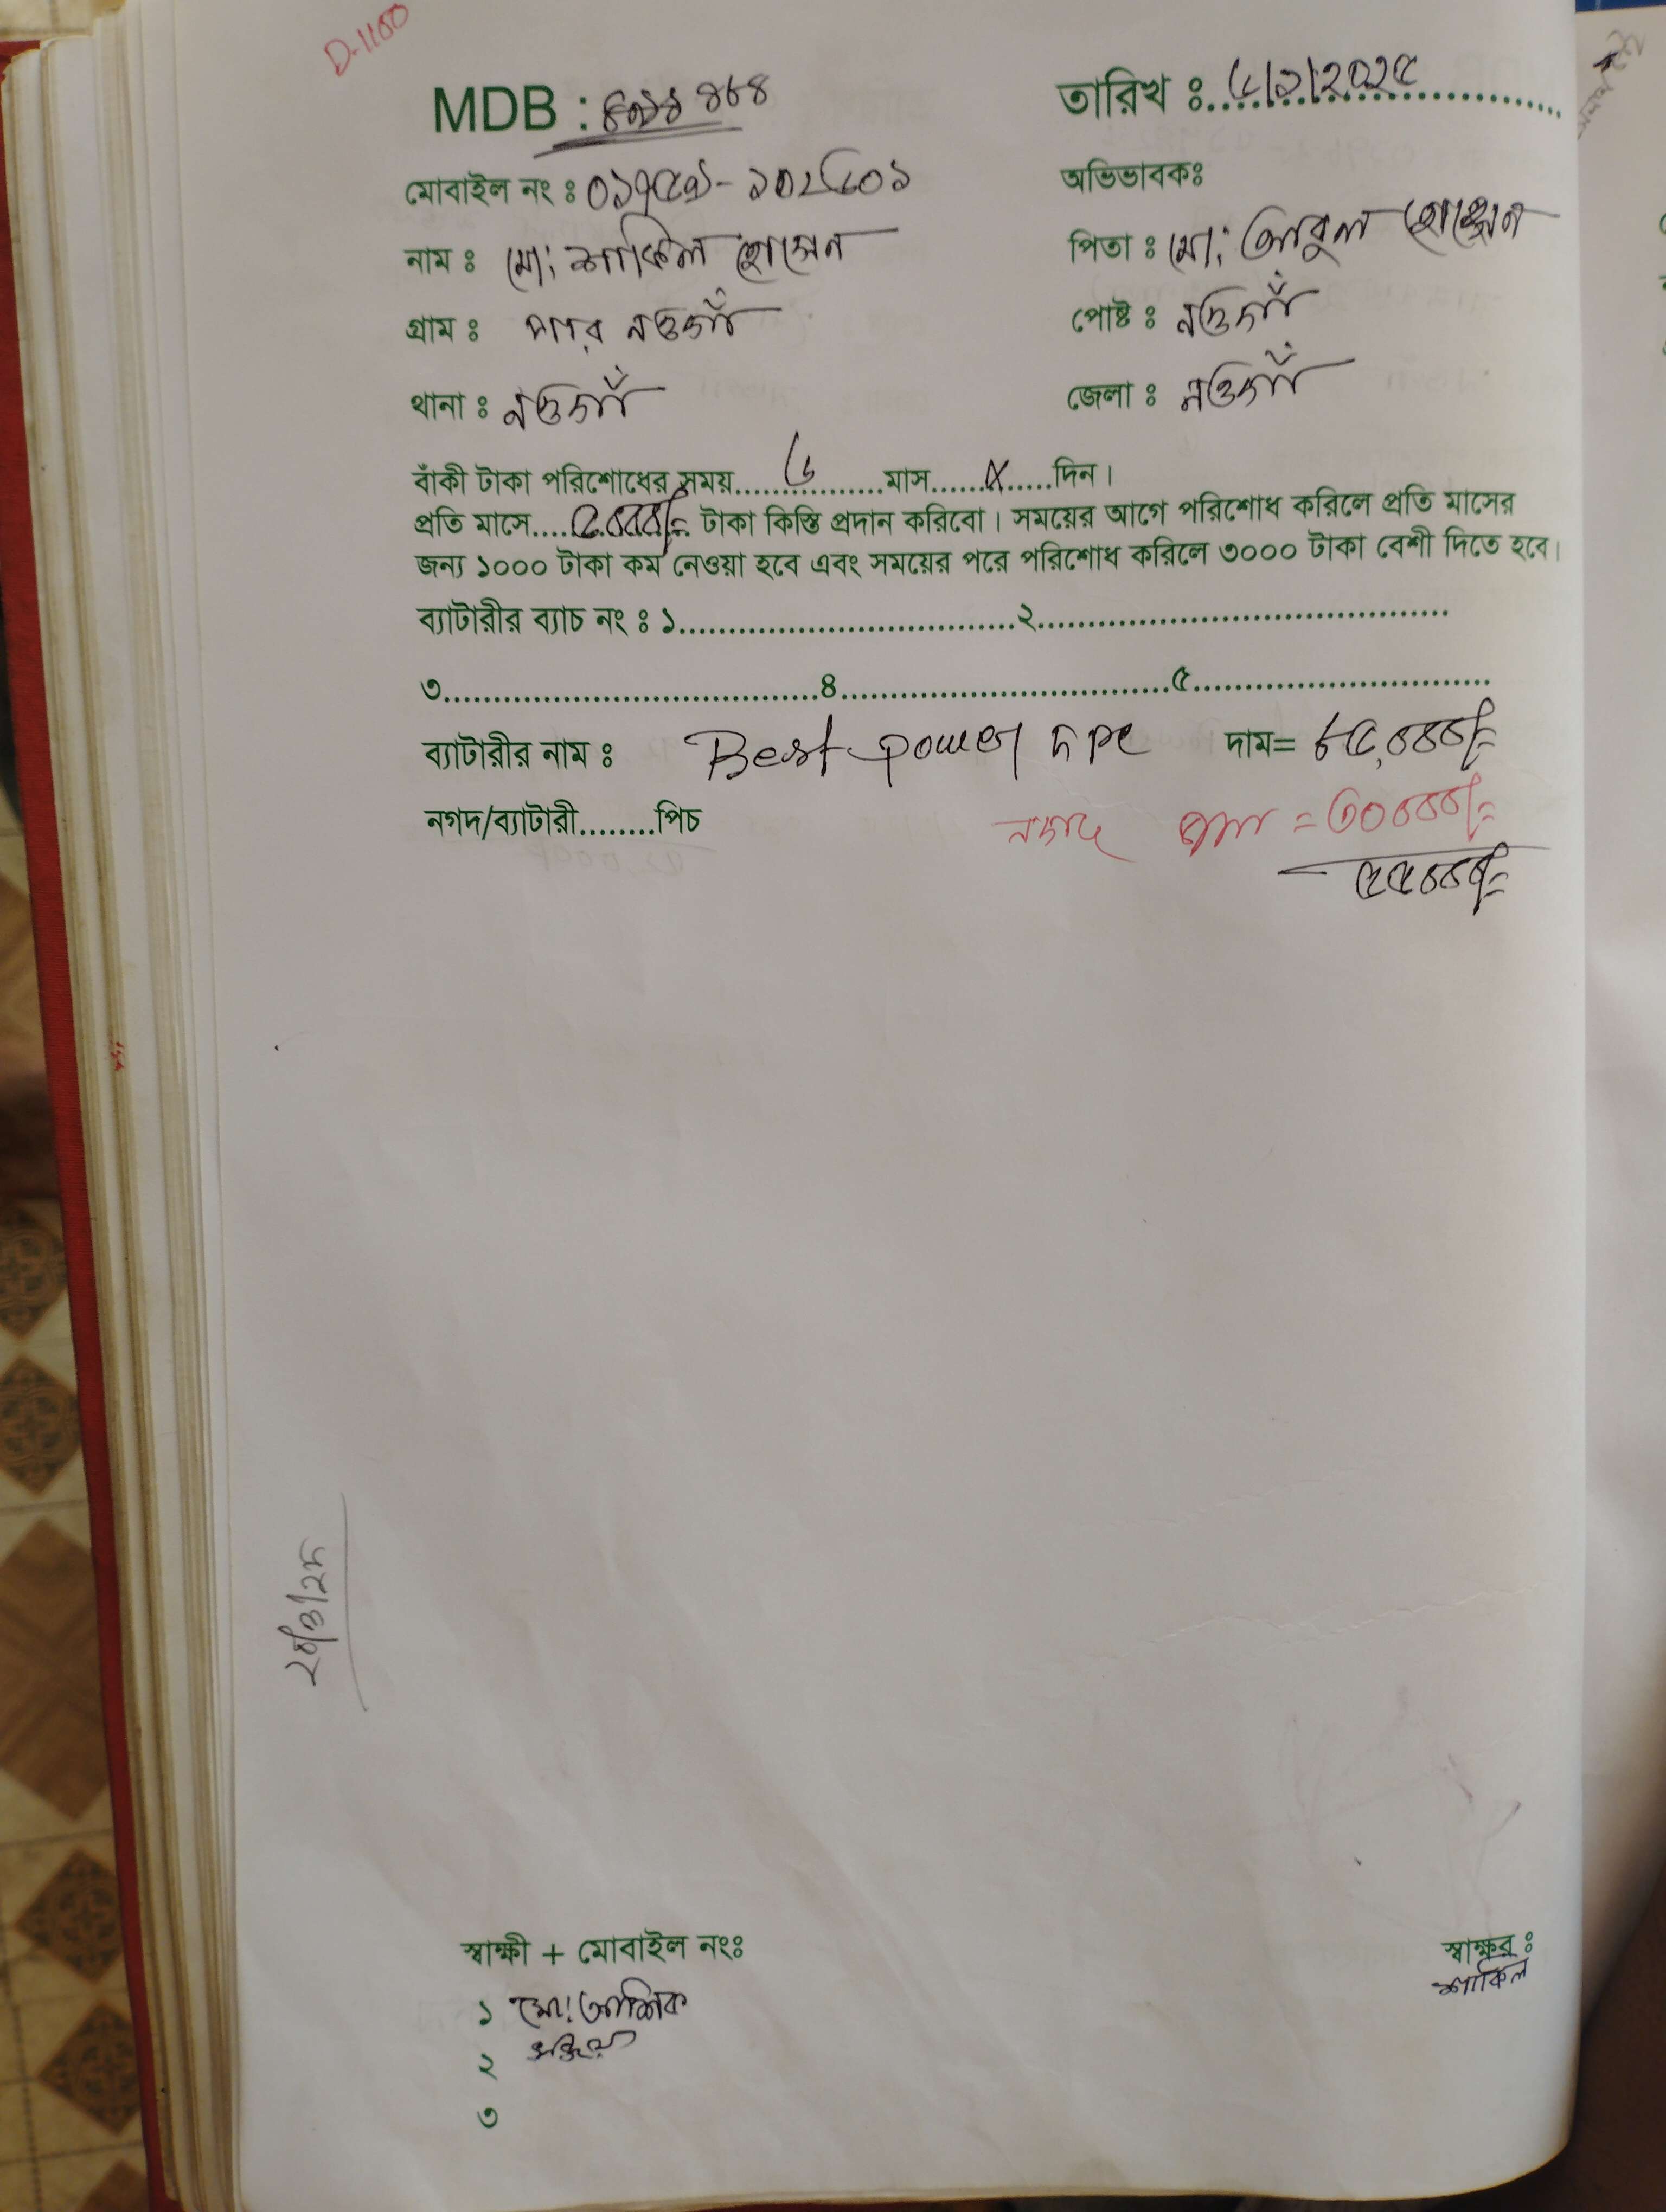 D-1100
MDB : ৪৬৪
তারিখ ঃ ৬/১/২০২৫
মোবাইল নং ঃ
অভিভাবকঃ
নাম ঃ মোঃ শাকিল হোসেন
পিতা ঃ মোঃ আবুল হোসেন
গ্রাম ঃ পার নওগাঁ
পোষ্ট ঃ নওগাঁ
থানা ঃ নওগাঁ
জেলা ঃ নওগাঁ
বাঁকী টাকা পরিশোধের সময়.....৬.....মাস.....x.....দিন।
প্রতি মাসে....৫০০০/=.. টাকা কিস্তি প্রদান করিবো। সময়ের আগে পরিশোধ করিলে প্রতি মাসের
জন্য ১০০০ টাকা কম নেওয়া হবে এবং সময়ের পরে পরিশোধ করিলে ৩০০০ টাকা বেশী দিতে হবে।
ব্যাটারীর ব্যাচ নং ঃ ১..........২..........
৩..........৪..........৫..........
ব্যাটারীর নাম ঃ Best power pc দাম= ৮৫,০০০/=
নগদ/ব্যাটারী........পিচ
নগদ জমা = ৩০০০০/=
৫৫০০০/=
২৫/3/২৫
স্বাক্ষী + মোবাইল নংঃ
স্বাক্ষর ঃ
শাকিল
১ মো: আশিক
২
৩